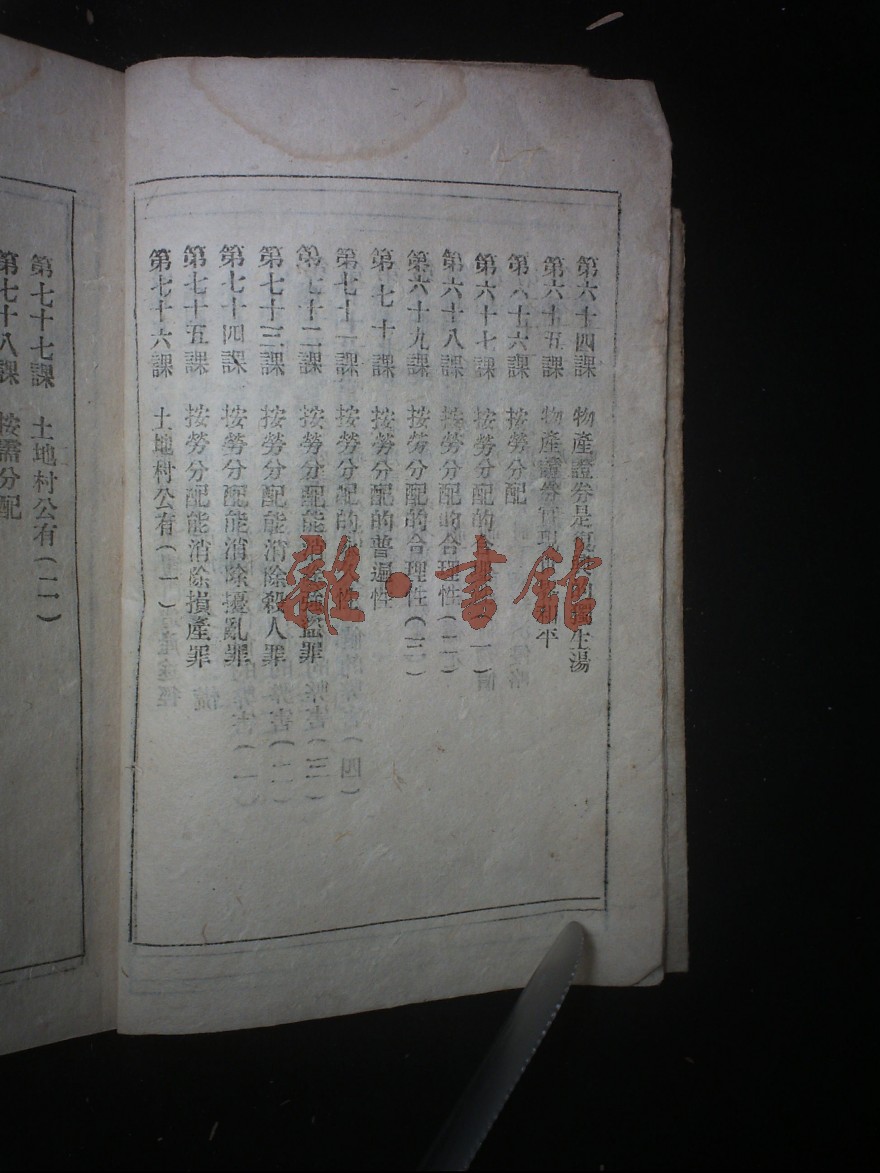 第六十四課 物產證券是 生湯
第六十五課 物產證券 平
第六十六課 按勞分配
第六十七課 按勞分配的合理性(一)
第六十八課 按勞分配的合理性(二)
第六十九課 按勞分配的合理性(三)
第七十課 按勞分配的普遍性
第七十一課 按勞分配的 性
第七十二課 按勞分配能消除強盜罪
第七十三課 按勞分配能消除殺人罪
第七十四課 按勞分配能消除擾亂罪
第七十五課 按勞分配能消除損產罪
第七十六課 土地村公有(一)
第七十七課 土地村公有(二)
第七十八課 按需分配
雜·書館